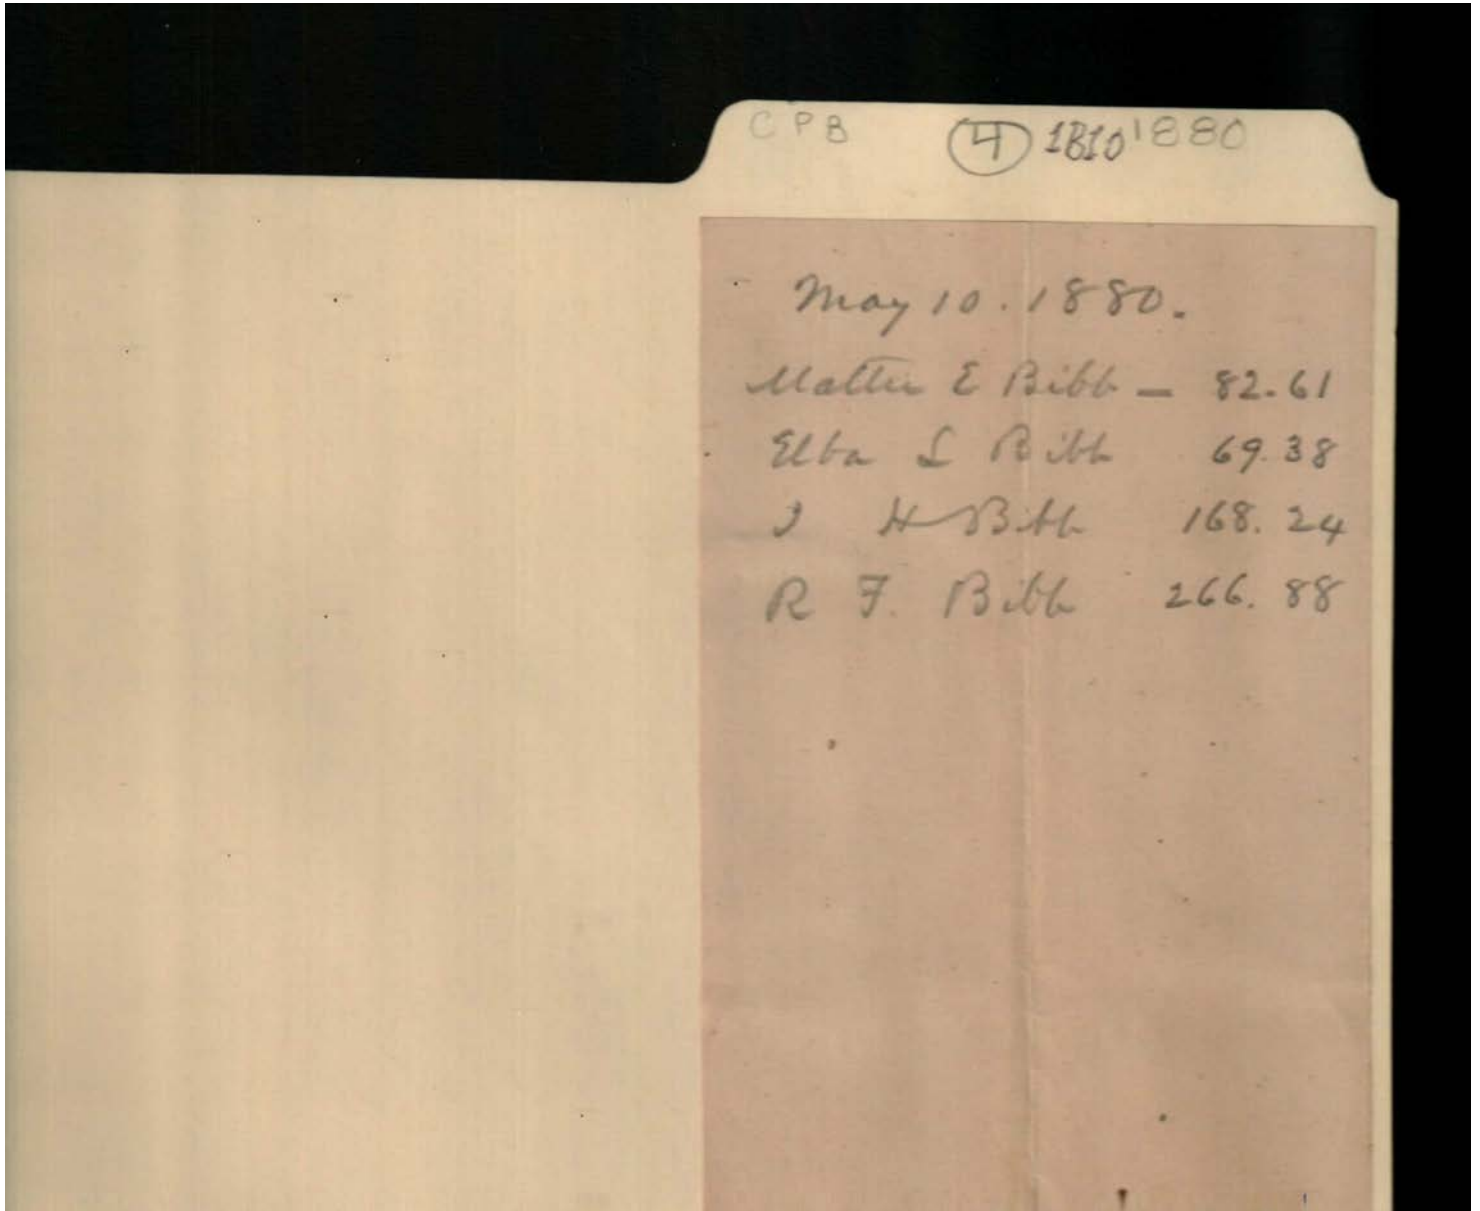 CPB 4 1B10 1880
May 10. 1880.
Mattie E Bibb — 82.61
Elba S Bibb 69.38
J H Bibb 168.24
R F. Bibb 266.88